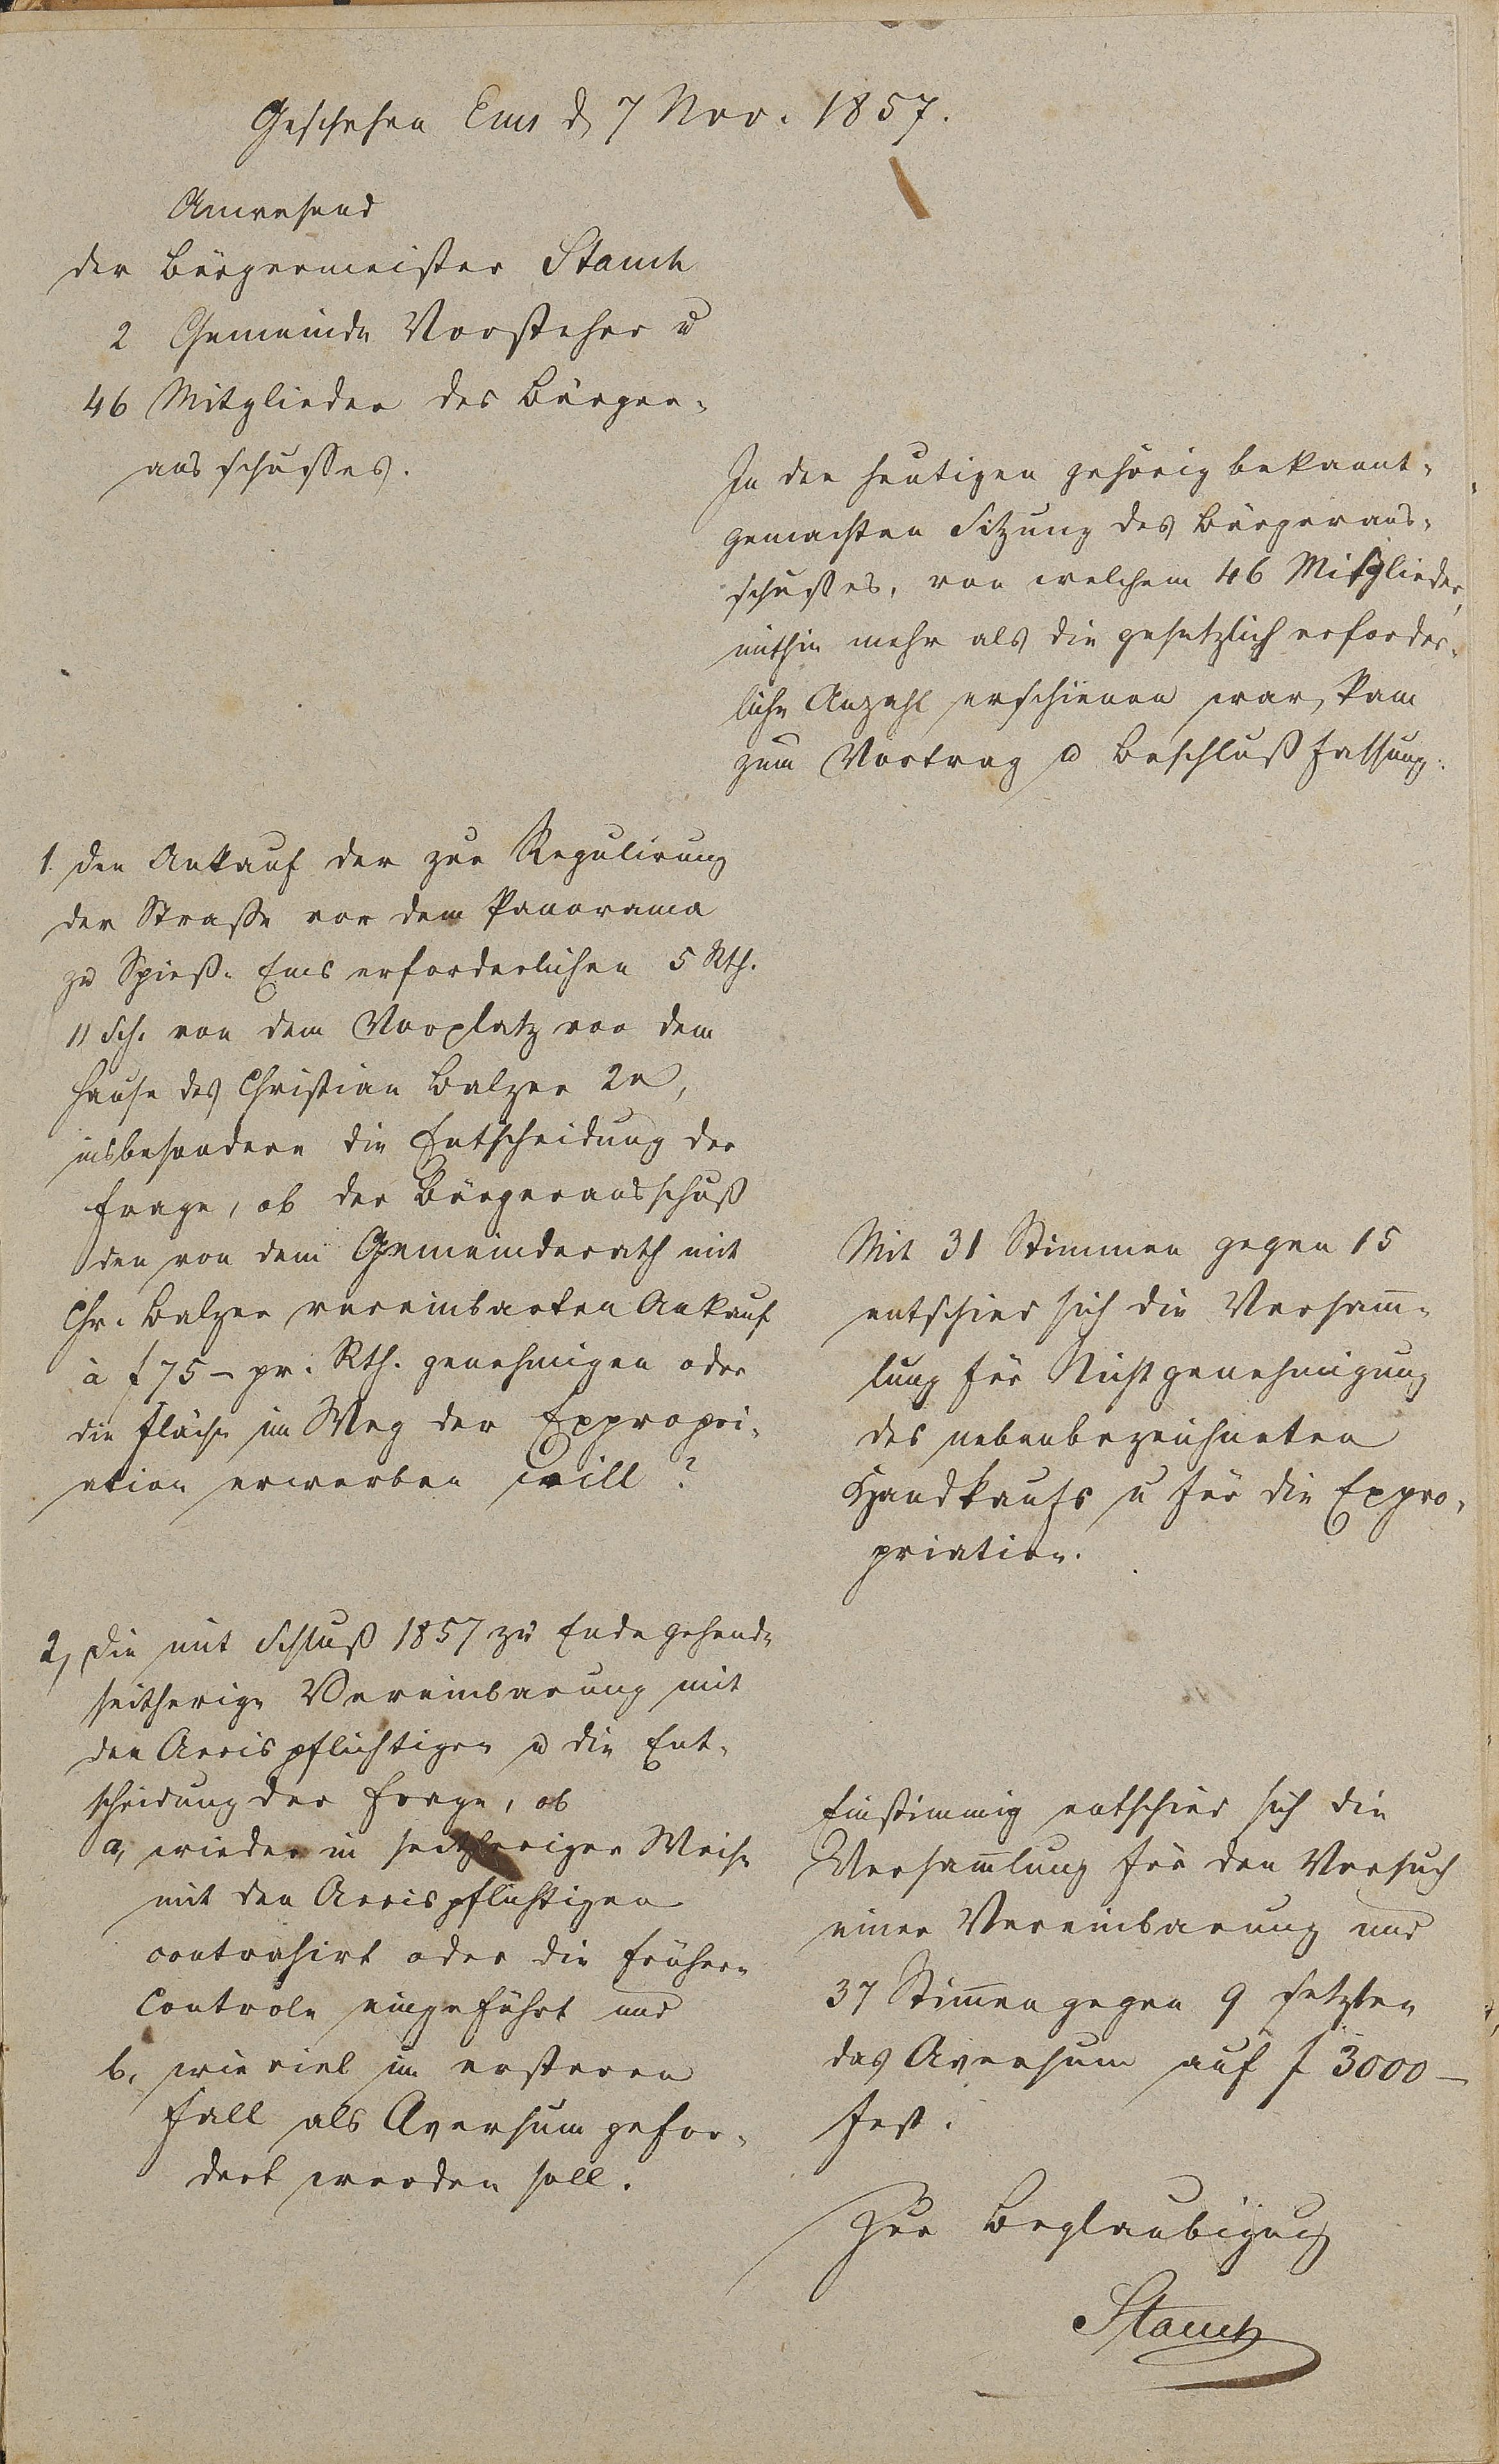 Geschehen Ems d. 7 Nov. 1857.
Anwesend
der Bürgermeister Stauch
2 Gemeinde Vorsteher u
46 Mitglieder des Bürger-
ausschusses.
In der heutigen gehörig bekannt-
gemachten Sitzung des Bürgeraus-
schußes, von welchem 46 Mitglieder,
mithin mehr als die gesetzlich erforder-
liche Anzahl erschienen war, kam
zum Vortrag u Beschlußfassung:
1. Der Ankauf der zur Regulirung
der Straße vor dem Panorama
zu Spieß-Ems erforderlichen 5 Rth.
11 Sch. von dem Vorplatz vor dem
Hause des Christian Balzer 2r,
insbesondere die Entscheidung der
Frage, ob der Bürgerausschuß
den von dem Gemeinderath mit
Chr. Balzer vereinbarten Ankauf
à f 75 – pr. Rth. genehmigen oder
die Fläche im Weg der Expropri-
ation erwerben will?
Mit 31 Stimmen gegen 15
entschied sich die Versam̄-
lung für Nichtgenehmigung
des nebenbezeichneten
Handkaufs u für die Expro-
priation.
2, Die mit Schluß 1857 zu Ende gehende
seitherige Vereinbarung mit
den Accispflichtigen u die Ent-
scheidung der Frage, ob
a, wieder in seitheriger Weise
mit den Accispflichtigen
contrahirt oder die frühere
Controle eingeführt und
b, wie viel im ersteren
Fall als Aversum gefor-
dert werden soll.
Einstimmig entschied sich die
Versam̄lung für den Versuch
einer Vereinbarung und
37 Stim̄en gegen 9 setzten
das Aversum auf f 3000 –
fest.
Zur Beglaubigung
Stauch